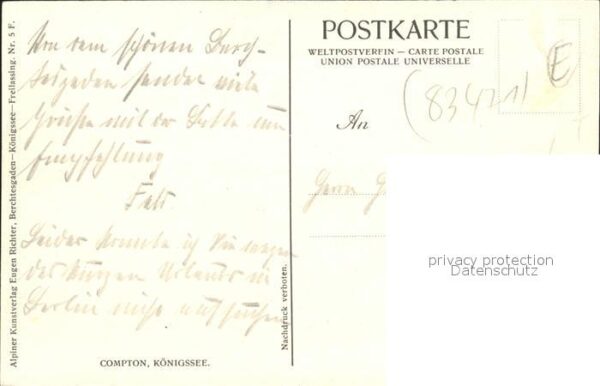 Alpiner Kunstverlag Eugen Richter, Berchtesgaden—Königssee—Freilassing. Nr. 5 F.
Von dem schönen Berch-
tesgaden sendet viele
Grüße mit der Bitte um
Empfehlung
Leider konnte ich Sie wegen
des kurzen Urlaubs in
Berlin nicht aufsuchen
COMPTON, KÖNIGSSEE.
Nachdruck verboten.
POSTKARTE
WELTPOSTVEREIN — CARTE POSTALE
UNION POSTALE UNIVERSELLE
E
834211
An
Herrn G
privacy protection
Datenschutz